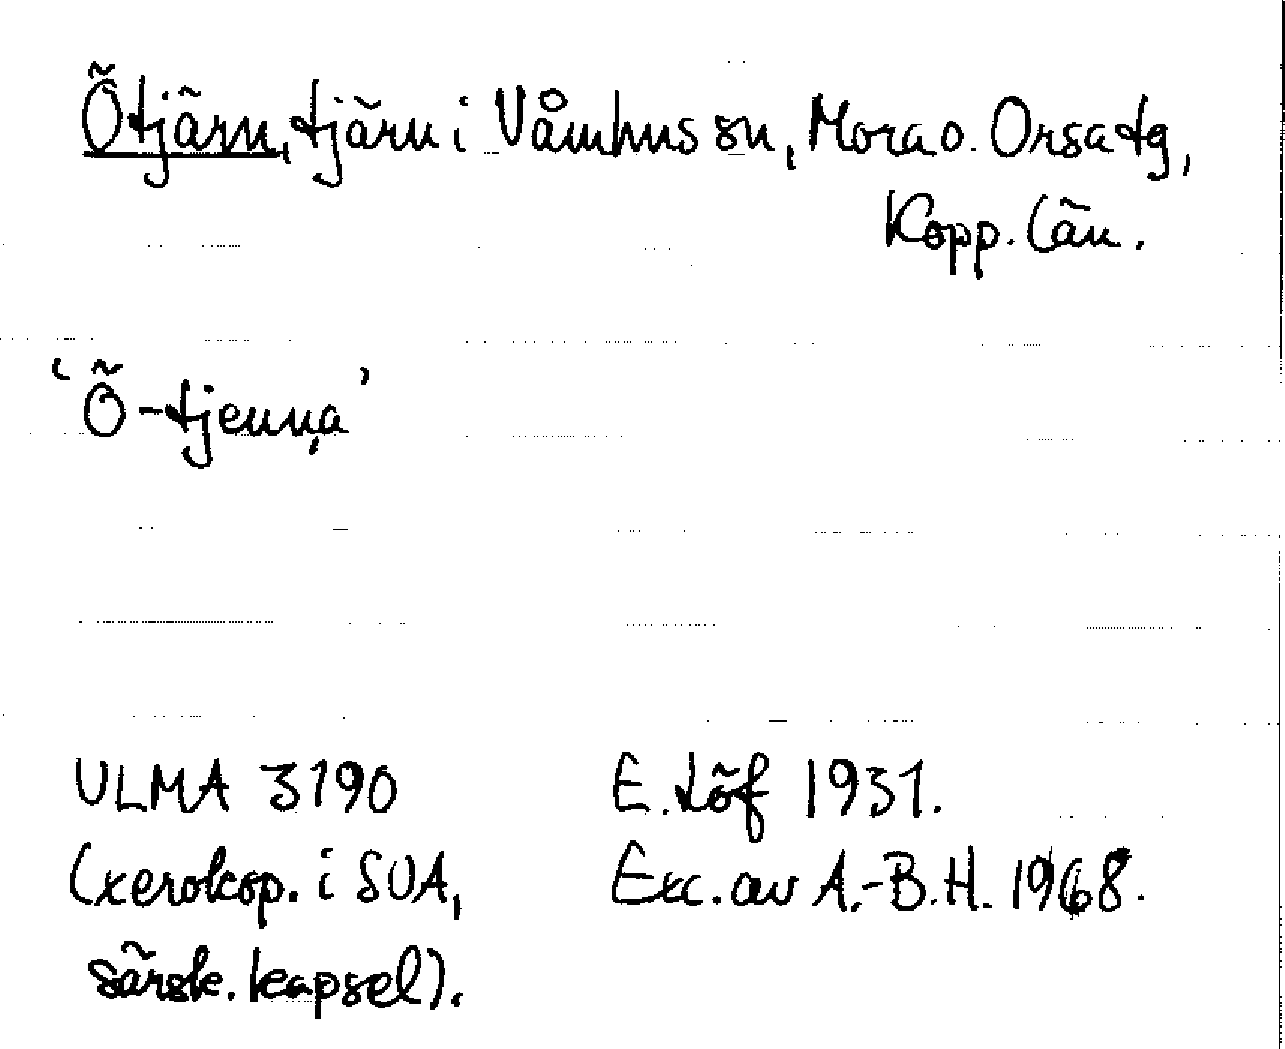 Ötjärn, tjärn i Våmhus sn, Mora o. Orsa tg,
Kopp. län.
'Ö-tjenṇa'
ULMA 3190
(xerokop. i SOA,
särsk. kapsel).
E. Löf 1931.
Exc. av A.-B.H. 1968.